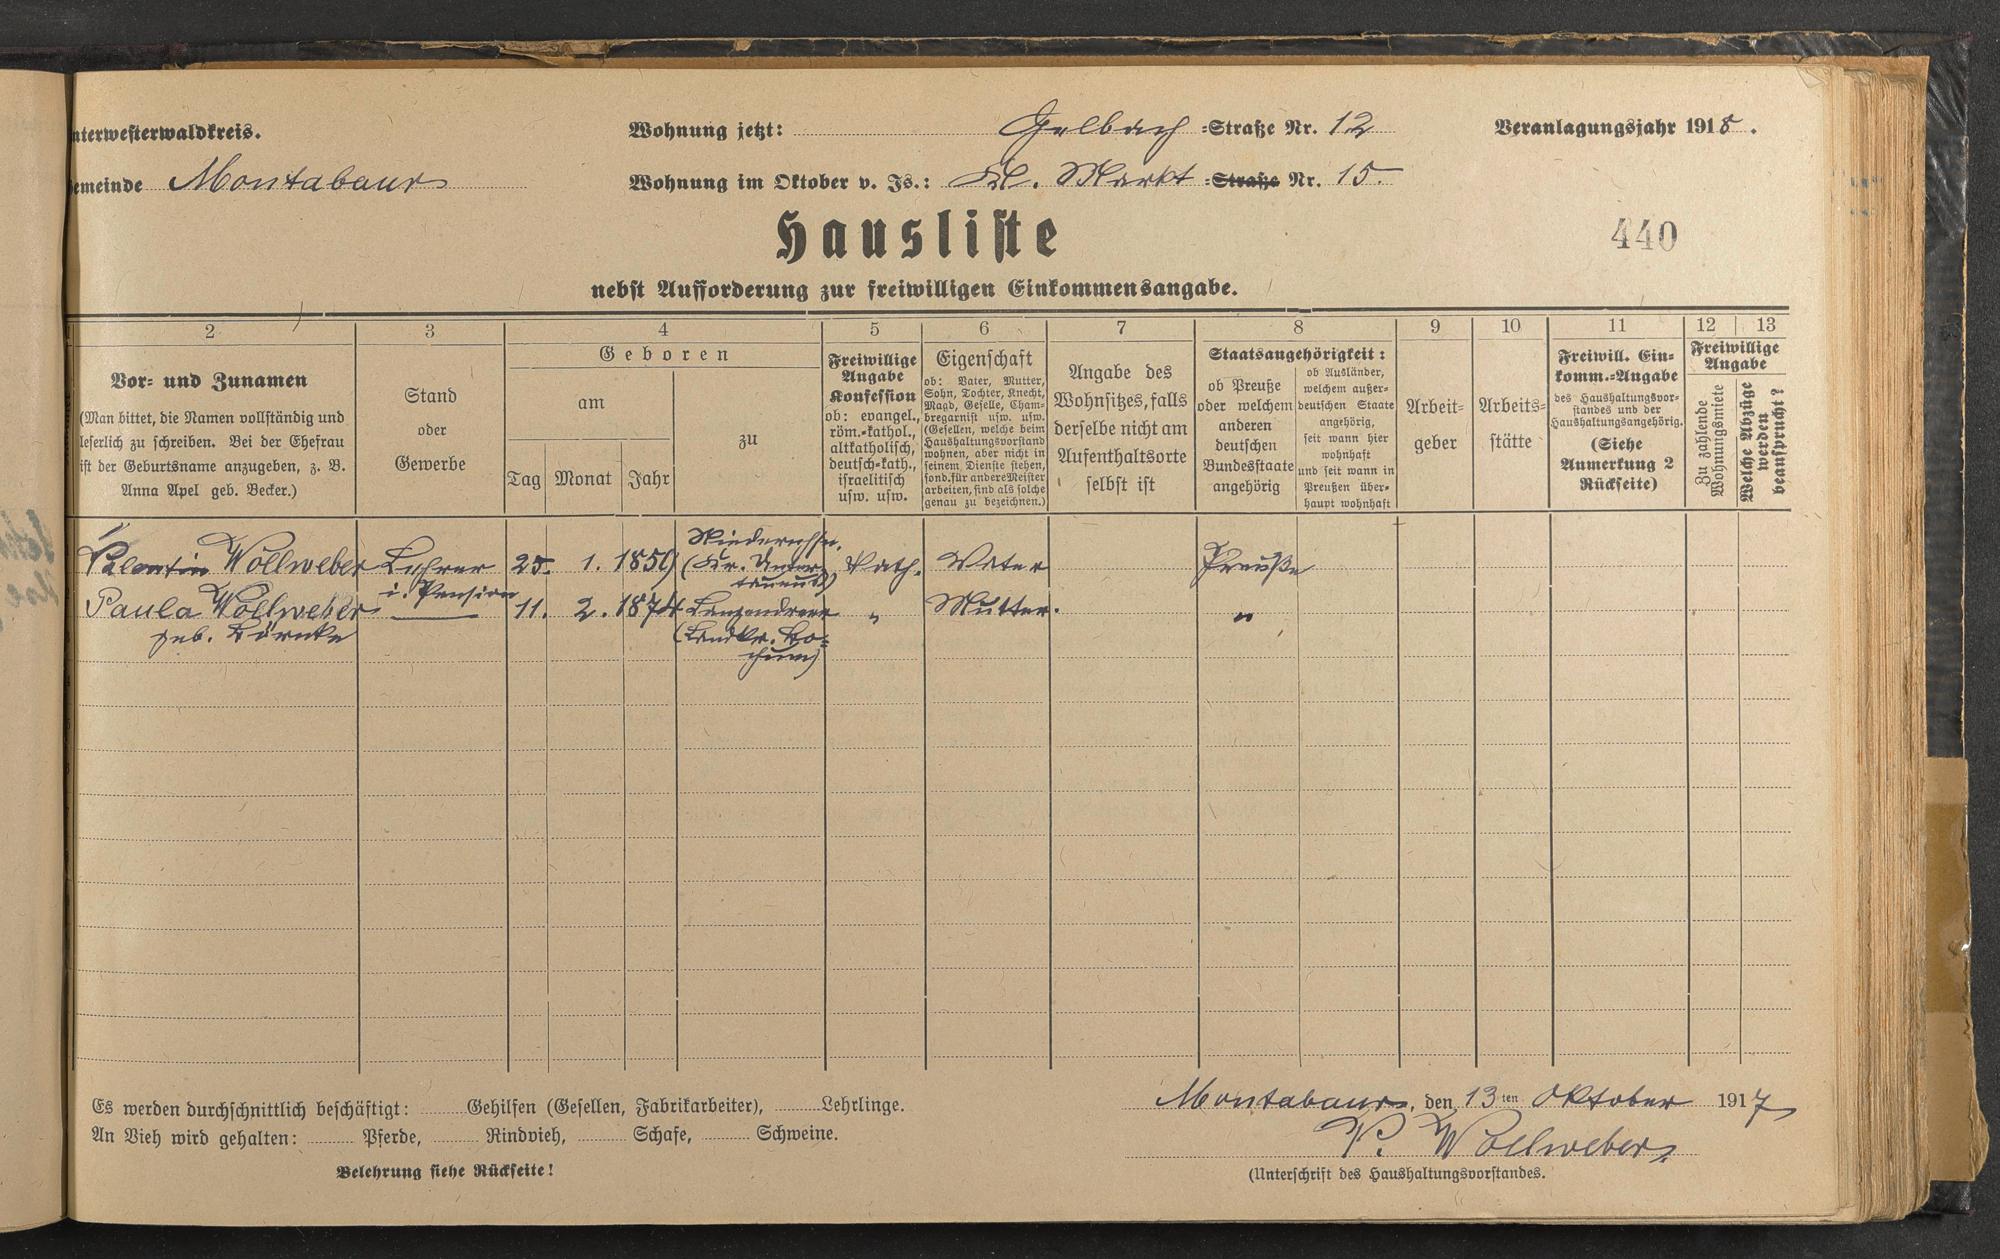 nterwesterwaldkreis.
Wohnung jetzt: Gelbach =Straße Nr. 12
Veranlagungsjahr 1918.
emeinde Montabaur
Wohnung im Oktober v. Js.: Kl. Markt =Straße Nr. 15.
Hausliste
440
nebst Aufforderung zur freiwilligen Einkommensangabe.
2 3 4 5 6 7 8 9 10 11 12 13
Vor- und Zunamen
(Man bittet, die Namen vollständig und
leserlich zu schreiben. Bei der Ehefrau
ist der Geburtsname anzugeben, z. B.
Anna Apel geb. Becker.)
Stand
oder
Gewerbe
Geboren
am
Tag Monat Jahr
zu
Freiwillige
Angabe
Konfession
ob: evangel.,
röm.-kathol.,
altkatholisch,
deutsch-kath.,
israelitisch
usw. usw.
Eigenschaft
ob: Vater, Mutter,
Sohn, Tochter, Knecht,
Magd, Geselle, Cham-
bregarnist usw. usw.
(Gesellen, welche beim
Haushaltungsvorstand
wohnen, aber nicht in
seinem Dienste stehen,
sond. für andere Meister
arbeiten, sind als solche
genau zu bezeichnen.)
Angabe des
Wohnsitzes, falls
derselbe nicht am
Aufenthaltsorte
selbst ist
Staatsangehörigkeit:
ob Preuße
oder welchem
anderen
deutschen
Bundesstaate
angehörig
ob Ausländer,
welchem außer-
deutschen Staate
angehörig,
seit wann hier
wohnhaft
und seit wann in
Preußen über-
haupt wohnhaft
Arbeit-
geber
Arbeits-
stätte
Freiwill. Ein-
komm.-Angabe
des Haushaltungsvor-
standes und der
Haushaltungsangehörig.
(Siehe
Anmerkung 2
Rückseite)
Freiwillige
Angabe
Zu zahlende
Wohnungsmiete
Welche Abzüge
werden
beansprucht?
Valentin Wollweber Lehrer 25. 1. 1859 (Kr. Unter- Kath. Vater Preuße
i. Pension taunus)
Paula Wollweber 11. 2. 1874 Langendreer " Mutter. "
geb. Körnke (Landkr. Bo-
chum)
Es werden durchschnittlich beschäftigt: Gehilfen (Gesellen, Fabrikarbeiter), Lehrlinge.
An Vieh wird gehalten: Pferde, Rindvieh, Schafe, Schweine.
Belehrung siehe Rückseite!
Montabaur, den 13ten Oktober 1917
V. Wollweber.
(Unterschrift des Haushaltungsvorstandes.